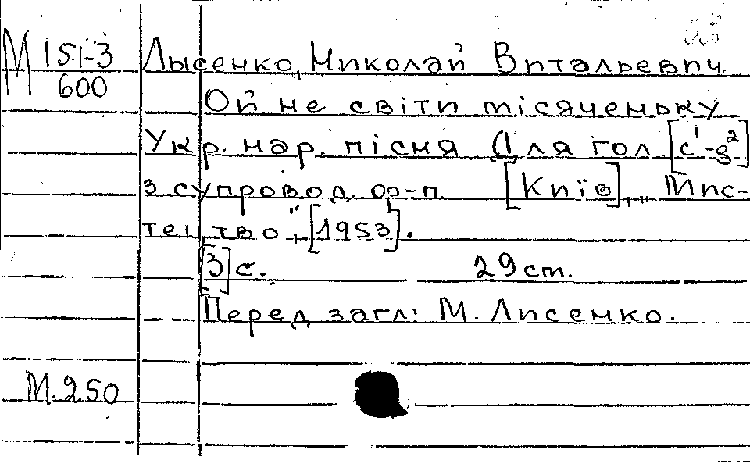 М 151-3 Лысенко, Николай Витальевич.
600
Ой не світи місяченьку
Укр. нар. пісня Для гол [c¹-g²]
з супровод. ф-п. [Київ], "Мис-
тецтво", [1953].
[3] с. 29 cm.
Перед загл: М. Лисенко.
М.250